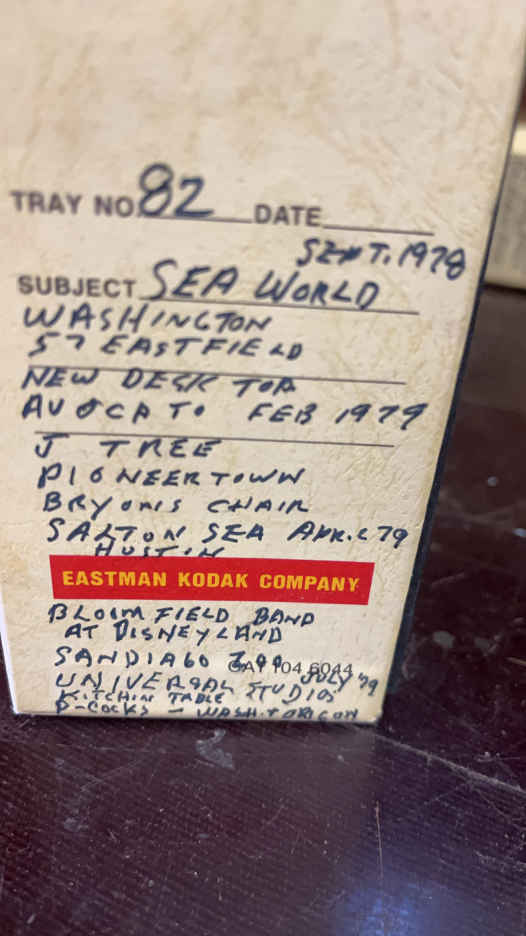 TRAY NO. 82 DATE
SEPT. 1978
SUBJECT SEA WORLD
WASHINGTON
57 EASTFIELD
NEW DESK TOP
AVOCATO FEB 1979
J TREE
PIONEERTOWN
BRYONS CHAIR
SALTON SEA APR. 79
EASTMAN KODAK COMPANY
BLOOMFIELD BAND
AT DISNEYLAND
SANDIAGO ZOO CAT 104 6044
UNIVERSAL STUDIOS JULY 79
KITCHIN TABLE
P-COCKS - WASH. & OREGON